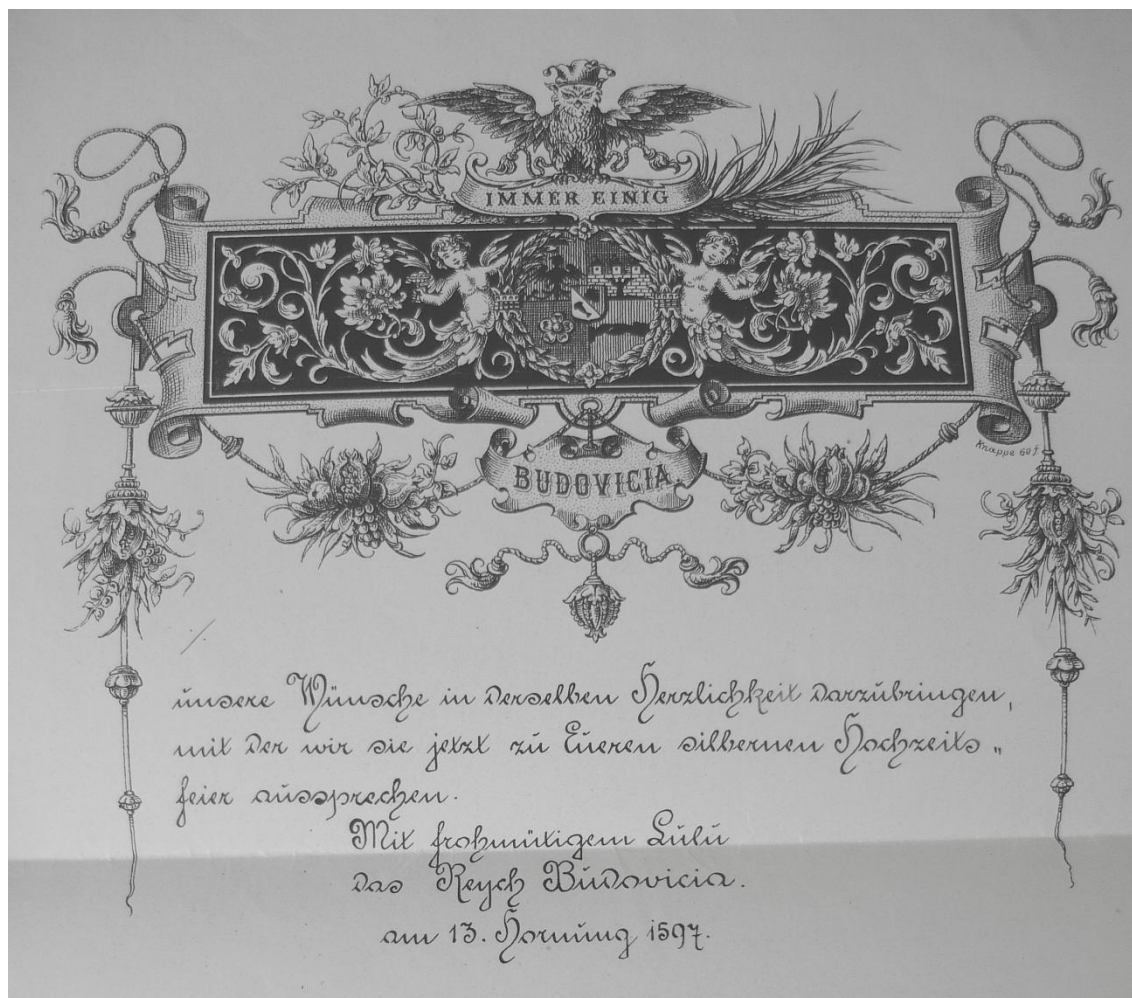 IMMER EINIG
Knappe 60 f.
BUDOVICIA
unsere Wünsche in derselben Herzlichkeit darzubringen,
mit der wir sie jetzt zu Eueren silbernen Hochzeits„
feier aussprechen.
Mit frohmütigem Lulu
das Reych Budovicia.
am 13. Hornung 1597.